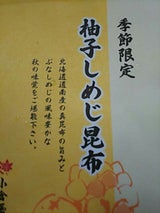 季節限定
柚子しめじ昆布
北海道道南産の真昆布の旨みと
ぶなしめじの風味豊かな
秋の味覚をご堪能下さい。
小倉屋